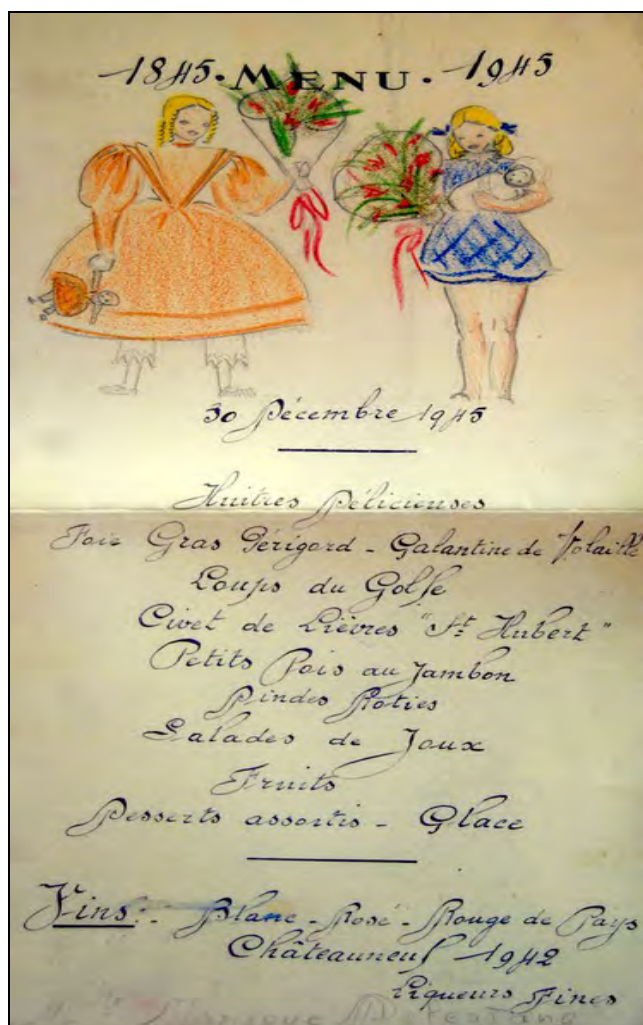 1845 · MENU · 1945
30 Décembre 1945
Huitres Délicieuses
Foie Gras Périgord - Galantine de Volaille
Loups du Golfe
Civet de Lièvres "St Hubert"
Petits Pois au Jambon
Dindes Roties
Salades de Joux
Fruits
Desserts assortis - Glace
Vins :- Blanc - Rosé - Rouge de Pays
Châteauneuf 1942
Liqueurs Fines